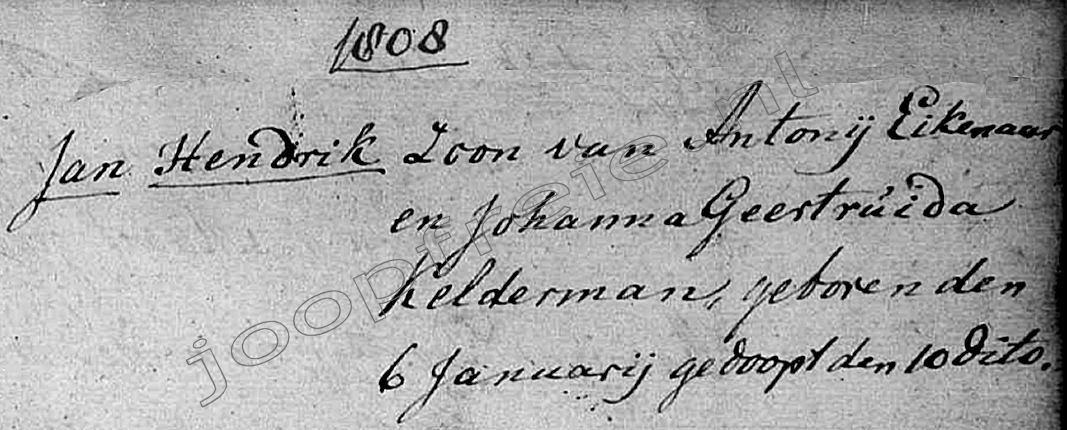 1808
Jan Hendrik Zoon van Antonij Eikenaar
en Johanna Geertrúida
Kelderman, geboren den
6 Januarij gedoopt den 10 dito.
joopfreie.nl